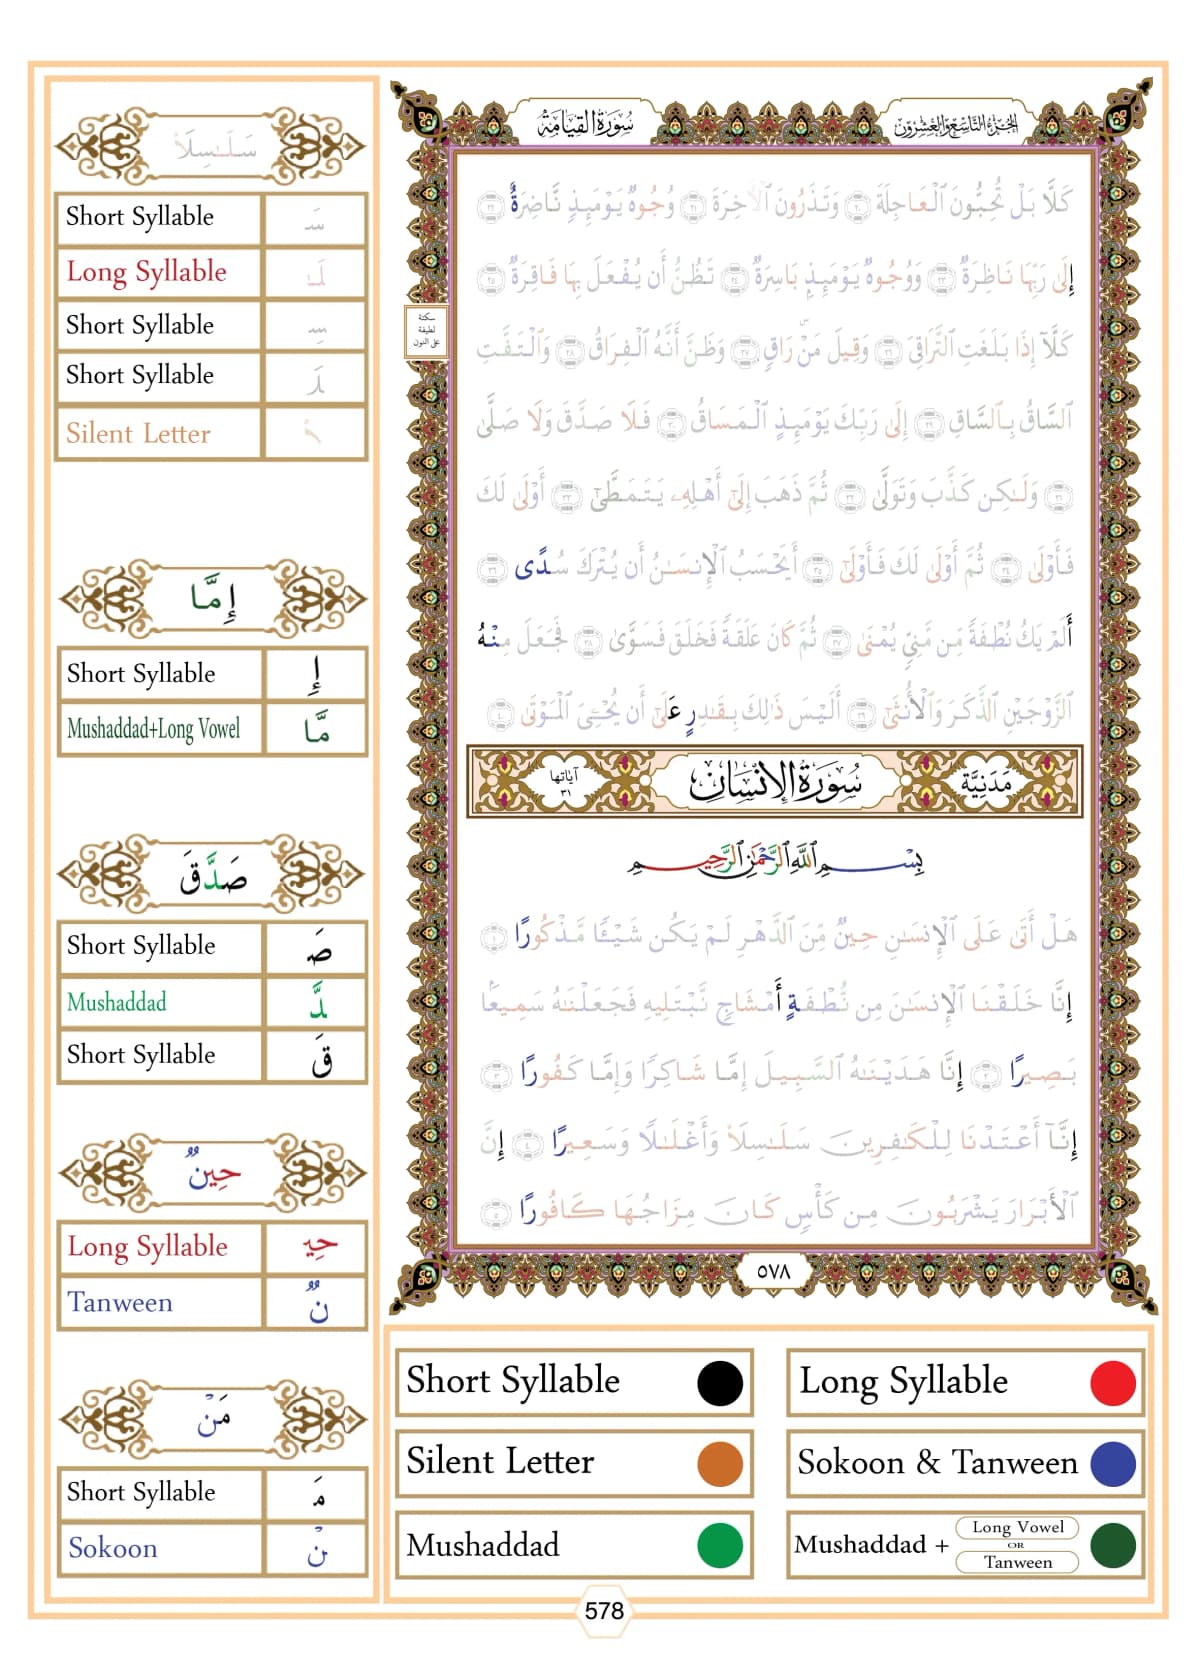 سُورَةُ القِيَامَة
الجُزْءُ التَّاسِعُ وَالعِشْرُونَ
كَلَّا بَلْ تُحِبُّونَ ٱلْعَاجِلَةَ ٢٠ وَتَذَرُونَ ٱلْأٓخِرَةَ ٢١ وُجُوهٌ يَوْمَئِذٍ نَّاضِرَةٌ ٢٢
إِلَىٰ رَبِّهَا نَاظِرَةٌ ٢٣ وَوُجُوهٌ يَوْمَئِذٍۭ بَاسِرَةٌ ٢٤ تَظُنُّ أَن يُفْعَلَ بِهَا فَاقِرَةٌ ٢٥
كَلَّآ إِذَا بَلَغَتِ ٱلتَّرَاقِىَ ٢٦ وَقِيلَ مَنْۜ رَاقٍ ٢٧ وَظَنَّ أَنَّهُ ٱلْفِرَاقُ ٢٨ وَٱلْتَفَّتِ
ٱلسَّاقُ بِٱلسَّاقِ ٢٩ إِلَىٰ رَبِّكَ يَوْمَئِذٍ ٱلْمَسَاقُ ٣٠ فَلَا صَدَّقَ وَلَا صَلَّىٰ
٣١ وَلَـٰكِن كَذَّبَ وَتَوَلَّىٰ ٣٢ ثُمَّ ذَهَبَ إِلَىٰٓ أَهْلِهِۦ يَتَمَطَّىٰٓ ٣٣ أَوْلَىٰ لَكَ
فَأَوْلَىٰ ٣٤ ثُمَّ أَوْلَىٰ لَكَ فَأَوْلَىٰٓ ٣٥ أَيَحْسَبُ ٱلْإِنسَـٰنُ أَن يُتْرَكَ سُدًى ٣٦
أَلَمْ يَكُ نُطْفَةً مِّن مَّنِىٍّ يُمْنَىٰ ٣٧ ثُمَّ كَانَ عَلَقَةً فَخَلَقَ فَسَوَّىٰ ٣٨ فَجَعَلَ مِنْهُ
ٱلزَّوْجَيْنِ ٱلذَّكَرَ وَٱلْأُنثَىٰٓ ٣٩ أَلَيْسَ ذَٰلِكَ بِقَـٰدِرٍ عَلَىٰٓ أَن يُحْـِۧىَ ٱلْمَوْتَىٰ ٤٠
سكتة
لطيفة
على النون
مَدَنِيَّة
سُورَةُ الإِنْسَان
آيَاتها
٣١
بِسْمِ ٱللَّهِ ٱلرَّحْمَـٰنِ ٱلرَّحِيمِ
هَلْ أَتَىٰ عَلَى ٱلْإِنسَـٰنِ حِينٌ مِّنَ ٱلدَّهْرِ لَمْ يَكُن شَيْـًٔا مَّذْكُورًا ١
إِنَّا خَلَقْنَا ٱلْإِنسَـٰنَ مِن نُّطْفَةٍ أَمْشَاجٍ نَّبْتَلِيهِ فَجَعَلْنَـٰهُ سَمِيعًۢا
بَصِيرًا ٢ إِنَّا هَدَيْنَـٰهُ ٱلسَّبِيلَ إِمَّا شَاكِرًا وَإِمَّا كَفُورًا ٣
إِنَّآ أَعْتَدْنَا لِلْكَـٰفِرِينَ سَلَـٰسِلَا۟ وَأَغْلَـٰلًا وَسَعِيرًا ٤ إِنَّ
ٱلْأَبْرَارَ يَشْرَبُونَ مِن كَأْسٍ كَانَ مِزَاجُهَا كَافُورًا ٥
٥٧٨
سَلَـٰسِلَا۟
Short Syllable سَـ
Long Syllable لَـٰ
Short Syllable سِـ
Short Syllable لَـ
Silent Letter ا۟
إِمَّا
Short Syllable إِ
Mushaddad+Long Vowel مَّا
صَدَّقَ
Short Syllable صَـ
Mushaddad ـدَّ
Short Syllable قَ
حِينٌ
Long Syllable حِيـ
Tanween نٌ
مَنْ
Short Syllable مَـ
Sokoon ـنْ
Short Syllable
Long Syllable
Silent Letter
Sokoon & Tanween
Mushaddad
Mushaddad + Long Vowel OR Tanween
578